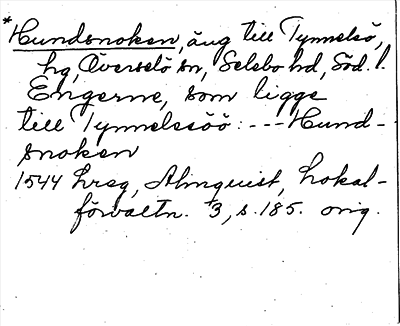 *Hundsnoken, äng till Tynnelsö,
hg, Överselö sn, Selebo hd, Söd. l.
Engerne, som ligge
till Tynnelssöö: --- Hund-
snoken
1544 hrsg, Almquist, Lokal-
förvaltn. 3, s. 185. orig.